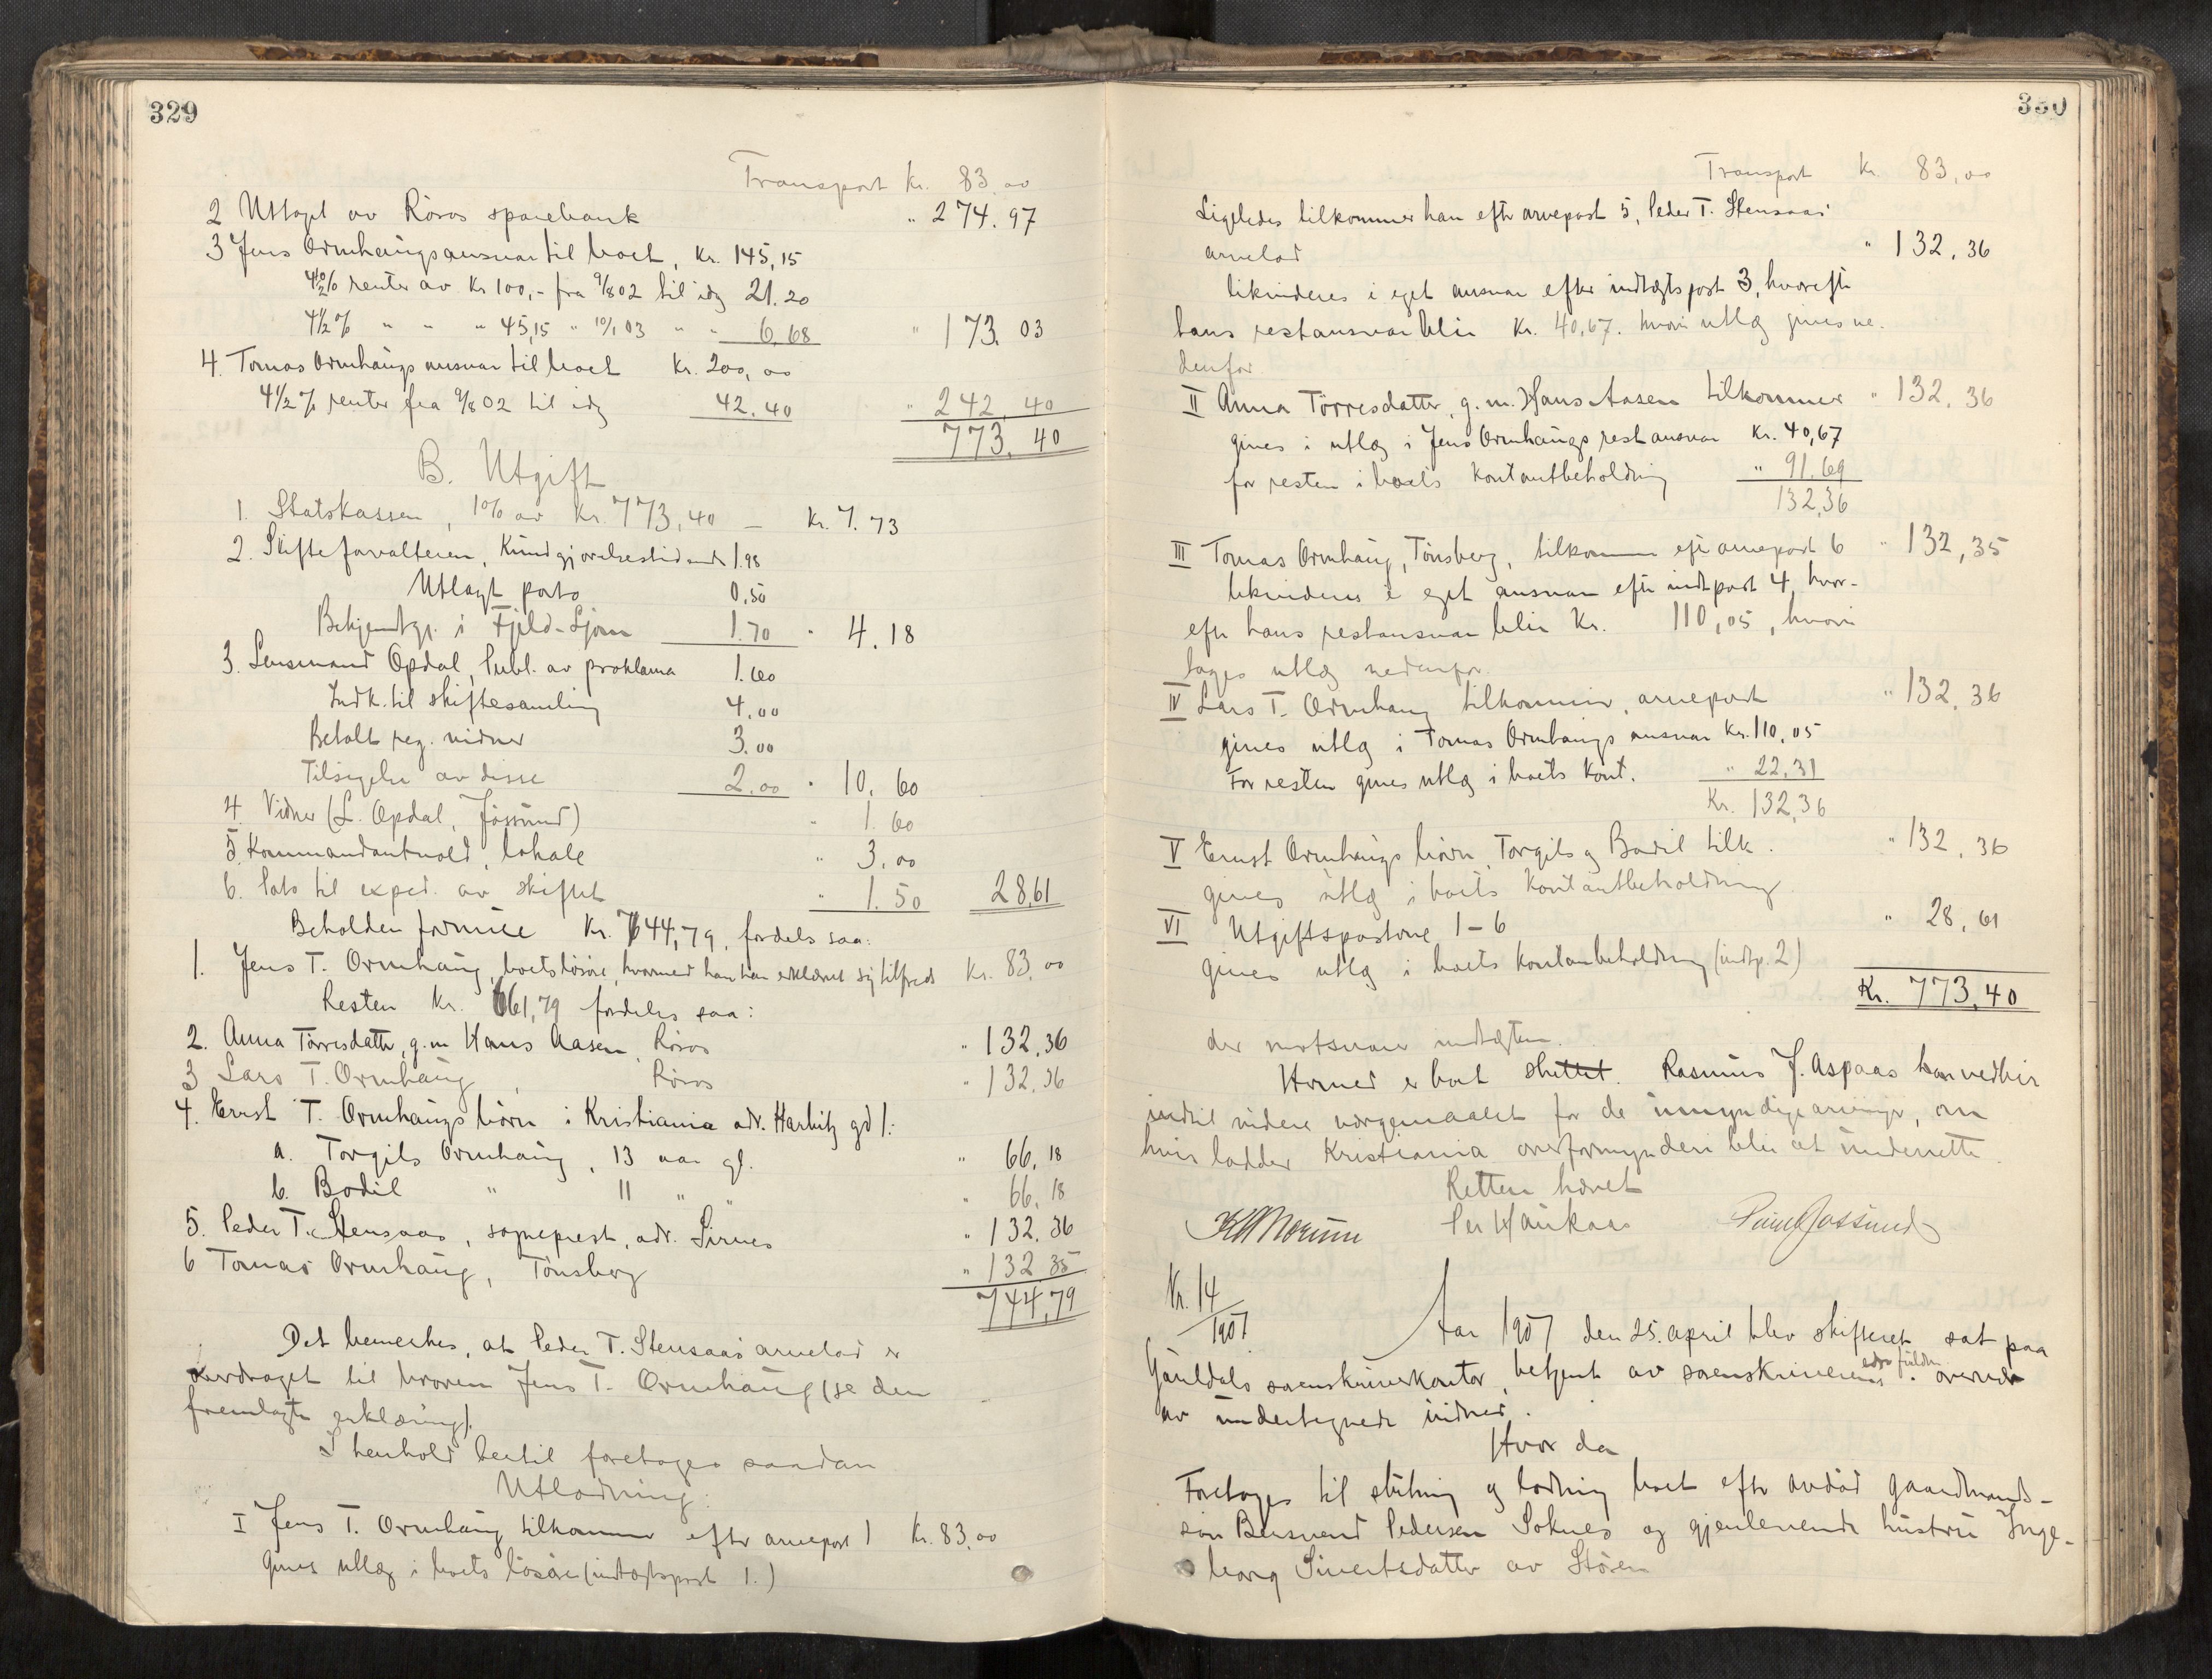 329
Transport Kr. 83.00
2 Uttaget av Röros sparebank " 274.97
3 Jens Ormhaugs ansvar til boet, Kr. 145,15
4½% renter av Kr 100,- fra 9/8 02 til idg 21.20
4½% " " " 45,15 " 10/1 03 " " 6.68 " 173.03
4. Tomas Ormhaugs ansvar til boet Kr. 200,00
4½% renter fra 9/8 02 til idg 42.40 " 242.40
773.40
B. Utgift
1. Statskassen, 1% av Kr. 773,40 — Kr. 7.73
2. Skifteforvalteren, Kundgjörelsestidende 1.98
Utlagt porto 0,50
Bekjendtgj. i Fjeld-Ljom 1.70 " 4.18
3. Lensmand Opdal, Publ. av proklama 1.60
Indk. til skiftesamling 4,00
Betalt reg. vidner 3.00
Tilsigelse av disse 2.00 " 10,60
4. Vidner (L. Opdal, Jössund) " 1.60
5. Kommandantvold, lokale " 3.00
6. Porto til exped. av skiftet " 1.50 28.61
Beholden formue Kr. 744,79, fordeles saa:
1. Jens T. Ormhaug, boets lösöre, hvormed han har erklæret sig tilfreds Kr. 83.00
Resten Kr. 661,79 fordeles saa:
2. Anna Törresdatter, g.m. Hans Aasen, Röros " 132.36
3 Lars T. Ormhaug, Röros " 132.36
4. Ernst T. Ormhaugs börn i Kristiania adr. Harbitz gd 1:
a. Torgils Ormhaug, 13 aar gl. " 66.18
b. Bodil " 11 " " " 66.18
5. Peder T. Stensaas, sogneprest, adr. Sirnes " 132.36
6 Tomas Ormhaug, Tönsberg " 132.35
744,79
Det bemerkes, at Peder T. Stensaas arvelod er
overdraget til broren Jens T. Ormhaug (se den
fremlagte erklæring).
I henhold hertil foretages saadan
Utlodning:
I Jens T. Ormhaug tilkommer efter arvepost 1 Kr. 83,00
gives utlæg i boets lösöre (indtægtspost 1.)
330
Transport Kr. 83,00
Ligeledes tilkommer han eftr arvepost 5, Peder T. Stensaas'
arvelod " 132,36
likvideres i eget ansvar efter indtægtspost 3, hvorefter
hans restansvar blir Kr. 40,67. hvori utlæg gives ne-
denfor.
II Anna Törresdatter, g.m. Hans Aasen tilkommer " 132.36
gives i utlæg i Jens Ormhaugs restansvar Kr. 40,67
for resten i boets kontantbeholdning " 91.69
132,36
III Tomas Ormhaug, Tönsberg, tilkommer eftr arvepost 6 " 132,35
likvideres i eget ansvar eftr indt post 4, hvor-
eftr hans restansvar blir Kr. 110,05, hvori
tages utlæg nedenfor.
IV Lars T. Ormhaug tilkommer, arvepost " 132,36
gives utlæg i Tomas Ormhaugs ansvar Kr. 110,05
For resten gives utlæg i boets kont. " 22,31
Kr. 132,36
V Ernst Ormhaugs börn, Torgils og Bodil tilk. " 132,36
gives utlæg i boets Kontantbeholdning.
VI Utgiftspostene 1-6 " 28,61
gives utlæg i boets kontanbeholdning (indtp. 2)
Kr. 773,40
der motsvarer indtægten.
Hermed er boet sluttet. Rasmus J. Aspaas har vedblir
indtil videre vergemaalet for de umyndige arvinger, om
hvis lodder Kristiania overformynderi blir at underrette.
Retten hævet
Per Haukaas Paul Jössund
Nr. 14/1907.
Aar 1907 den 25. april blev skifteret sat paa
Gauldals sorenskriverkontor, betjent av sorenskriverens edsv. fuldm. overvær
av undertegnede vidner.
Hvor da
Foretoges til slutning og lodning boet eftr avdöd gaardmands-
sön Pedersen Soknes og gjenlevende hustru Inge-
borg Sivertsdatter av Stören